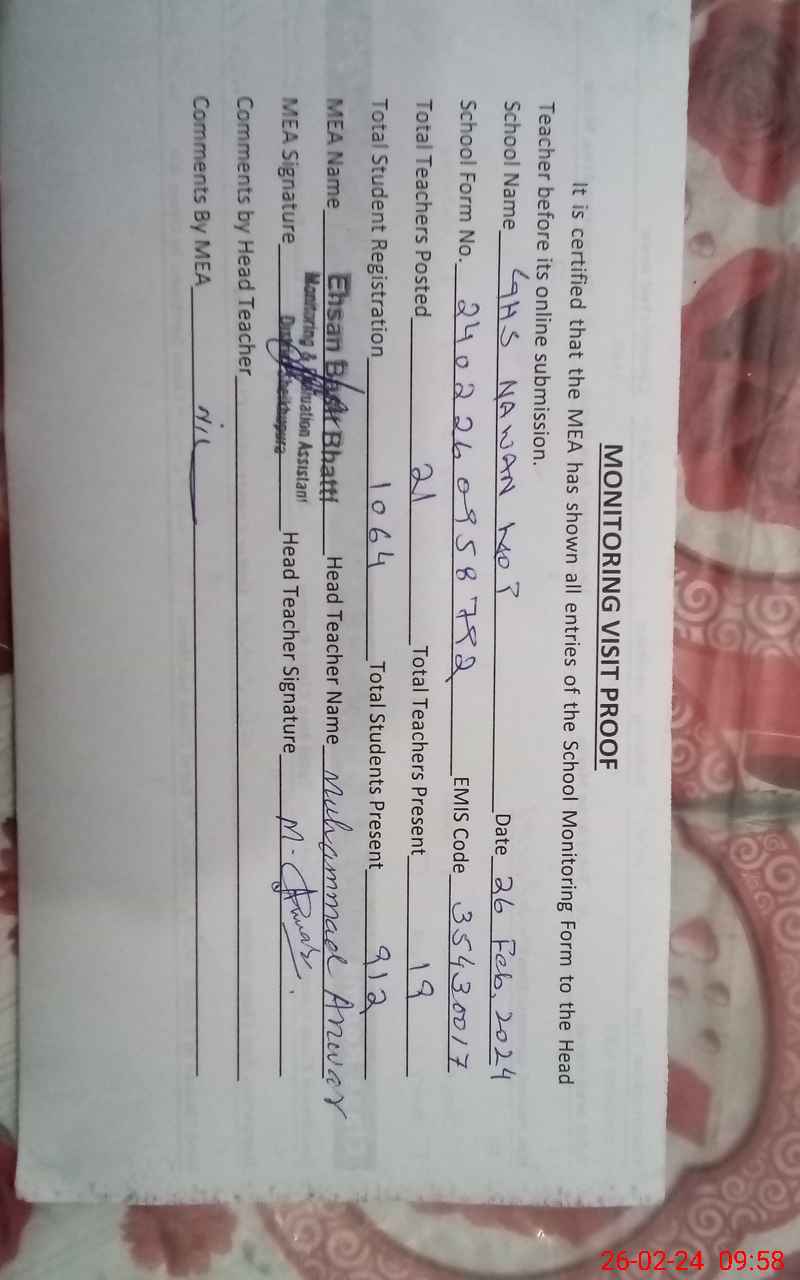 MONITORING VISIT PROOF
It is certified that the MEA has shown all entries of the School Monitoring Form to the Head
Teacher before its online submission.
School Name GHS NAWAN Date 26 Feb, 2024
School Form No. 2402260958792 EMIS Code 35430017
Total Teachers Posted 21 Total Teachers Present 19
Total Student Registration 1064 Total Students Present 912
MEA Name Ehsan Bhatti Head Teacher Name Muhammad Anwar
Monitoring & Evaluation Assistant
MEA Signature District Sheikhupura Head Teacher Signature M. Anwar.
Comments by Head Teacher
Comments By MEA NIL
26-02-24 09:58